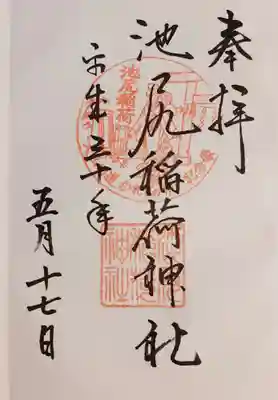 奉拝
池尻稲荷神社
平成三十年
五月十七日
池尻稲荷